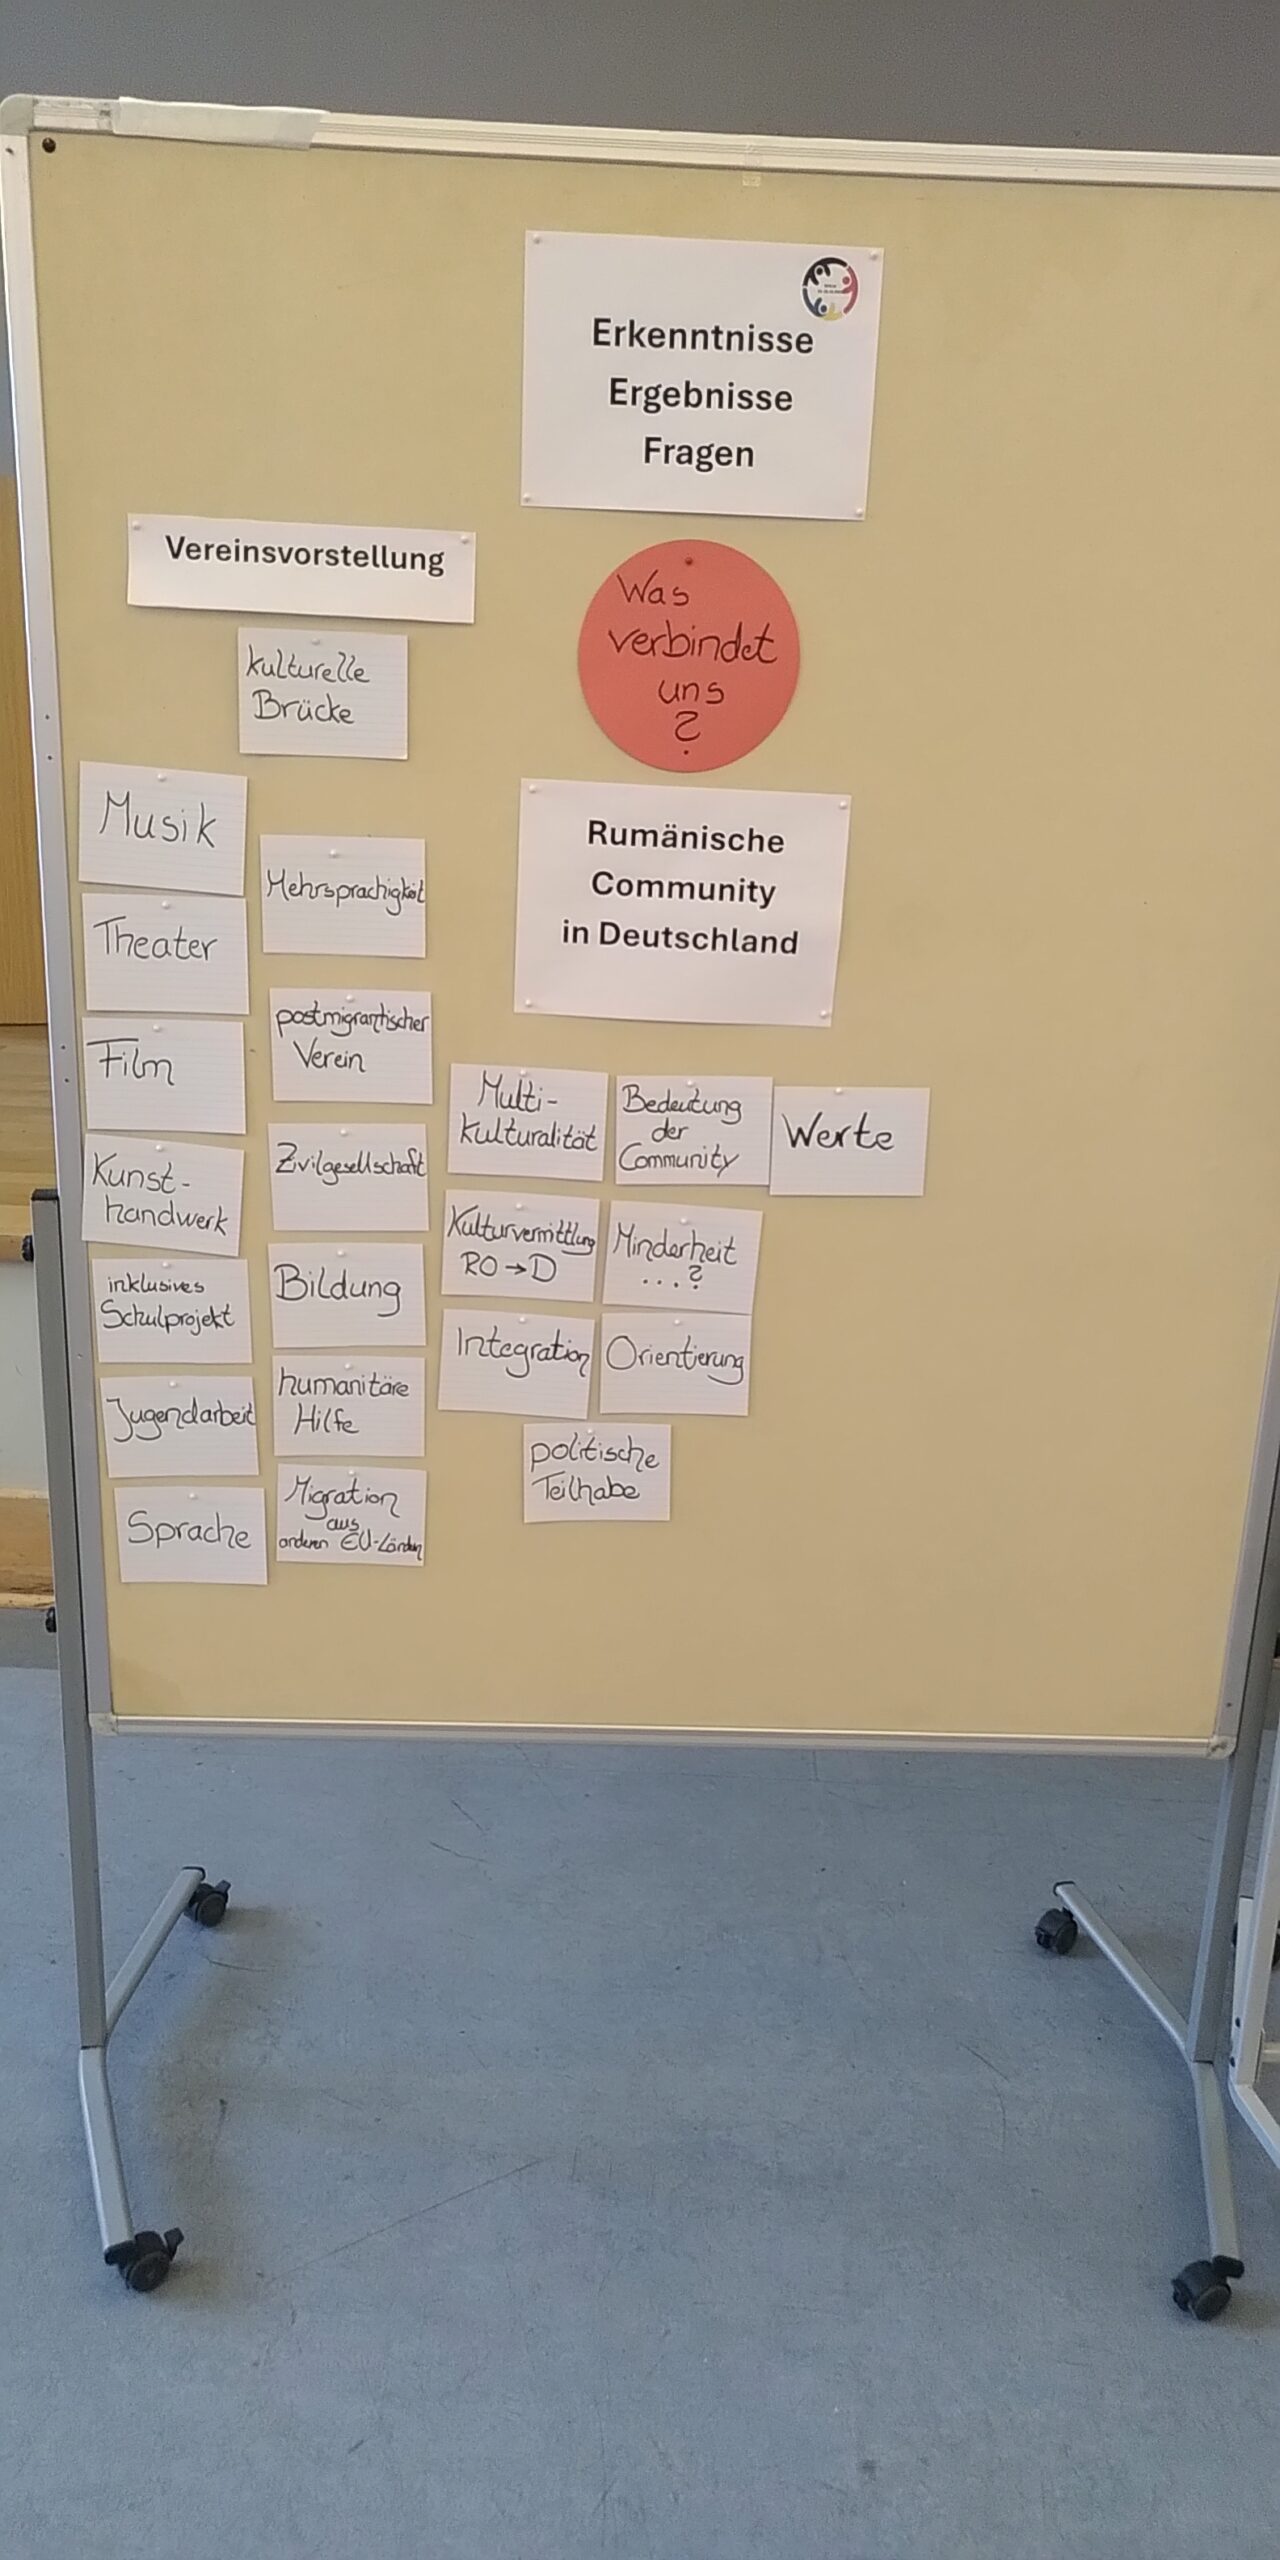 Erkenntnisse
Ergebnisse
Fragen
Vereinsvorstellung
kulturelle
Brücke
Musik
Theater
Film
Kunst-
handwerk
inklusives
Schulprojekt
Jugendarbeit
Sprache
Mehrsprachigkeit
postmigrantischer
Verein
Zivilgesellschaft
Bildung
humanitäre
Hilfe
Migration
aus
anderen EU-Ländern
Was
verbindet
uns
?
Rumänische
Community
in Deutschland
Multi-
kulturalität
Bedeutung
der
Community
Werte
Kulturvermittlung
RO→D
Minderheit
...?
Integration
Orientierung
politische
Teilhabe